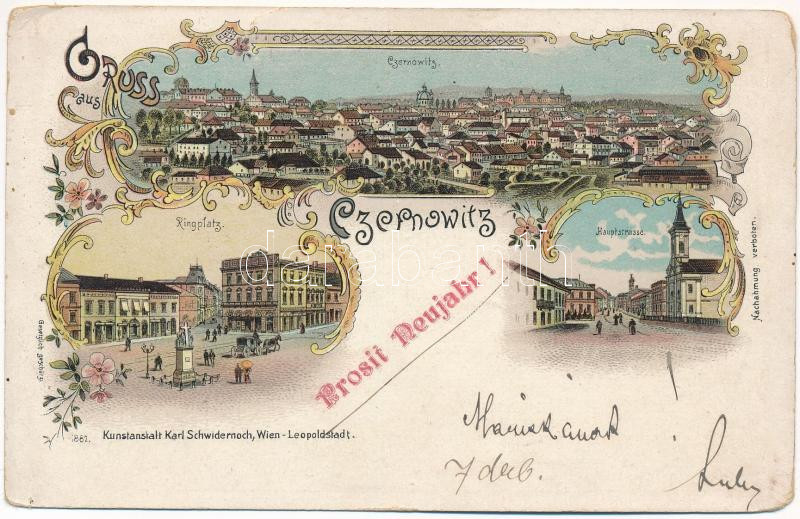 Gruss
aus
Czernowitz
Czernowitz.
Ringplatz.
Hauptstrasse.
Prosit Neujahr!
Nachahmung verboten.
Gesetzlich geschützt.
1882. Kunstanstalt Karl Schwidernoch, Wien-Leopoldstadt.
7 drb.
darabanth